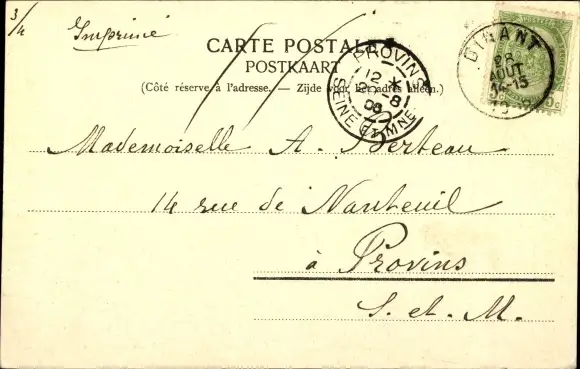 3/4
Imprimé
CARTE POSTALE
POSTKAART
(Côté réservé à l'adresse. — Zijde voor het adres alleen.)
PROVINS
12
8
08
SEINE ET MNE
DINANT
28
AOUT
14-15
Mademoiselle A. Berteau
14 rue de Nanteuil
à Provins
S. et M.